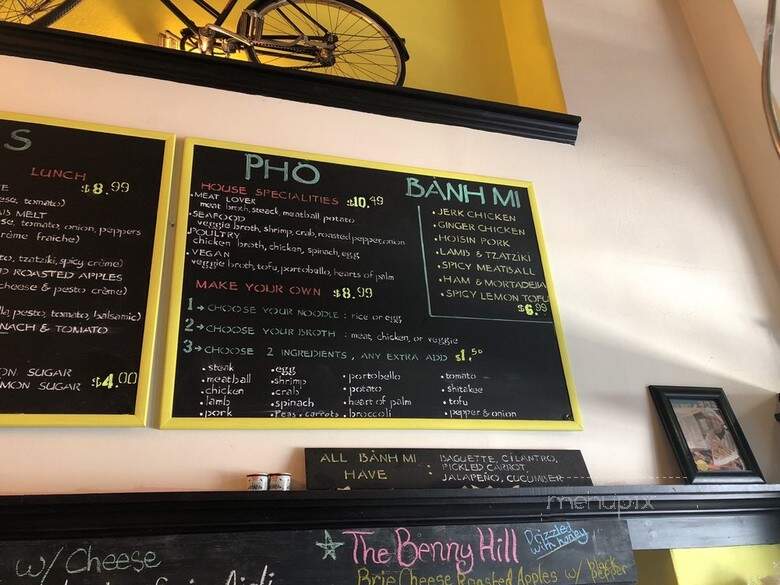 S
LUNCH
$8.99
ese, tomato)
MELT
se, tomato, onion, peppers
crème fraiche)
to, tzatziki, spicy crème)
D ROASTED APPLES
cheese & pesto crème)
pesto, tomato, balsamic)
NACH & TOMATO
ON SUGAR
MON SUGAR $4.00
PHO
HOUSE SPECIALITIES $10.49
• MEAT LOVER
meat broth, steack, meatball, potato
• SEAFOOD
veggie broth, shrimp, crab, roasted pepper, onion
• POULTRY
chicken broth, chicken, spinach, egg
• VEGAN
veggie broth, tofu, portobello, hearts of palm
MAKE YOUR OWN $8.99
1 → CHOOSE YOUR NOODLE : rice or egg
2 → CHOOSE YOUR BROTH : meat, chicken, or veggie
3 → CHOOSE 2 INGREDIENTS, ANY EXTRA ADD $1.50
• steak
• meatball
• chicken
• lamb
• pork
• egg
• shrimp
• crab
• spinach
• Peas, carrots
• portobello
• potato
• heart of palm
• broccoli
• tomato
• shitakee
• tofu
• pepper & onion
BÁNH MI
• JERK CHICKEN
• GINGER CHICKEN
• HOISIN PORK
• LAMB & TZATZIKI
• SPICY MEATBALL
• HAM & MORTADELA
• SPICY LEMON TOFU
$6.99
ALL BÁNH MI HAVE :
BAGUETTE, CILANTRO,
PICKLED CARROT,
JALAPEÑO, CUCUMBER
menupix
w/ Cheese
The Benny Hill
Drizzled
with honey
Brie Cheese Roasted Apples w/ black
pepper